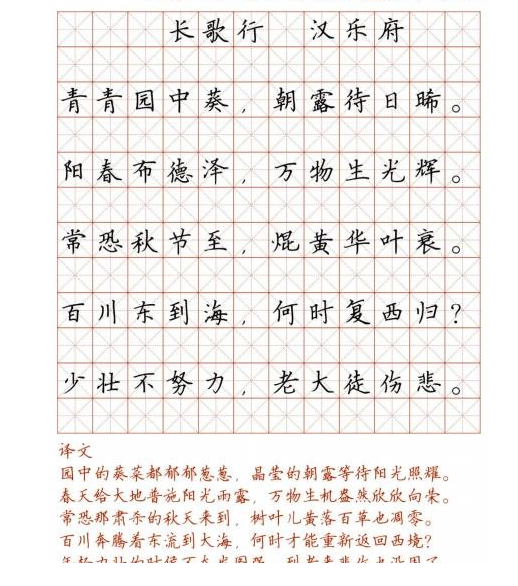 长歌行 汉乐府
青青园中葵,朝露待日晞。
阳春布德泽,万物生光辉。
常恐秋节至,焜黄华叶衰。
百川东到海,何时复西归?
少壮不努力,老大徒伤悲。
译文
园中的葵菜都郁郁葱葱,晶莹的朝露等待阳光照耀。
春天给大地普施阳光雨露,万物生机盎然欣欣向荣。
常恐那肃杀的秋天来到,树叶儿黄落百草也凋零。
百川奔腾着东流到大海,何时才能重新返回西境?